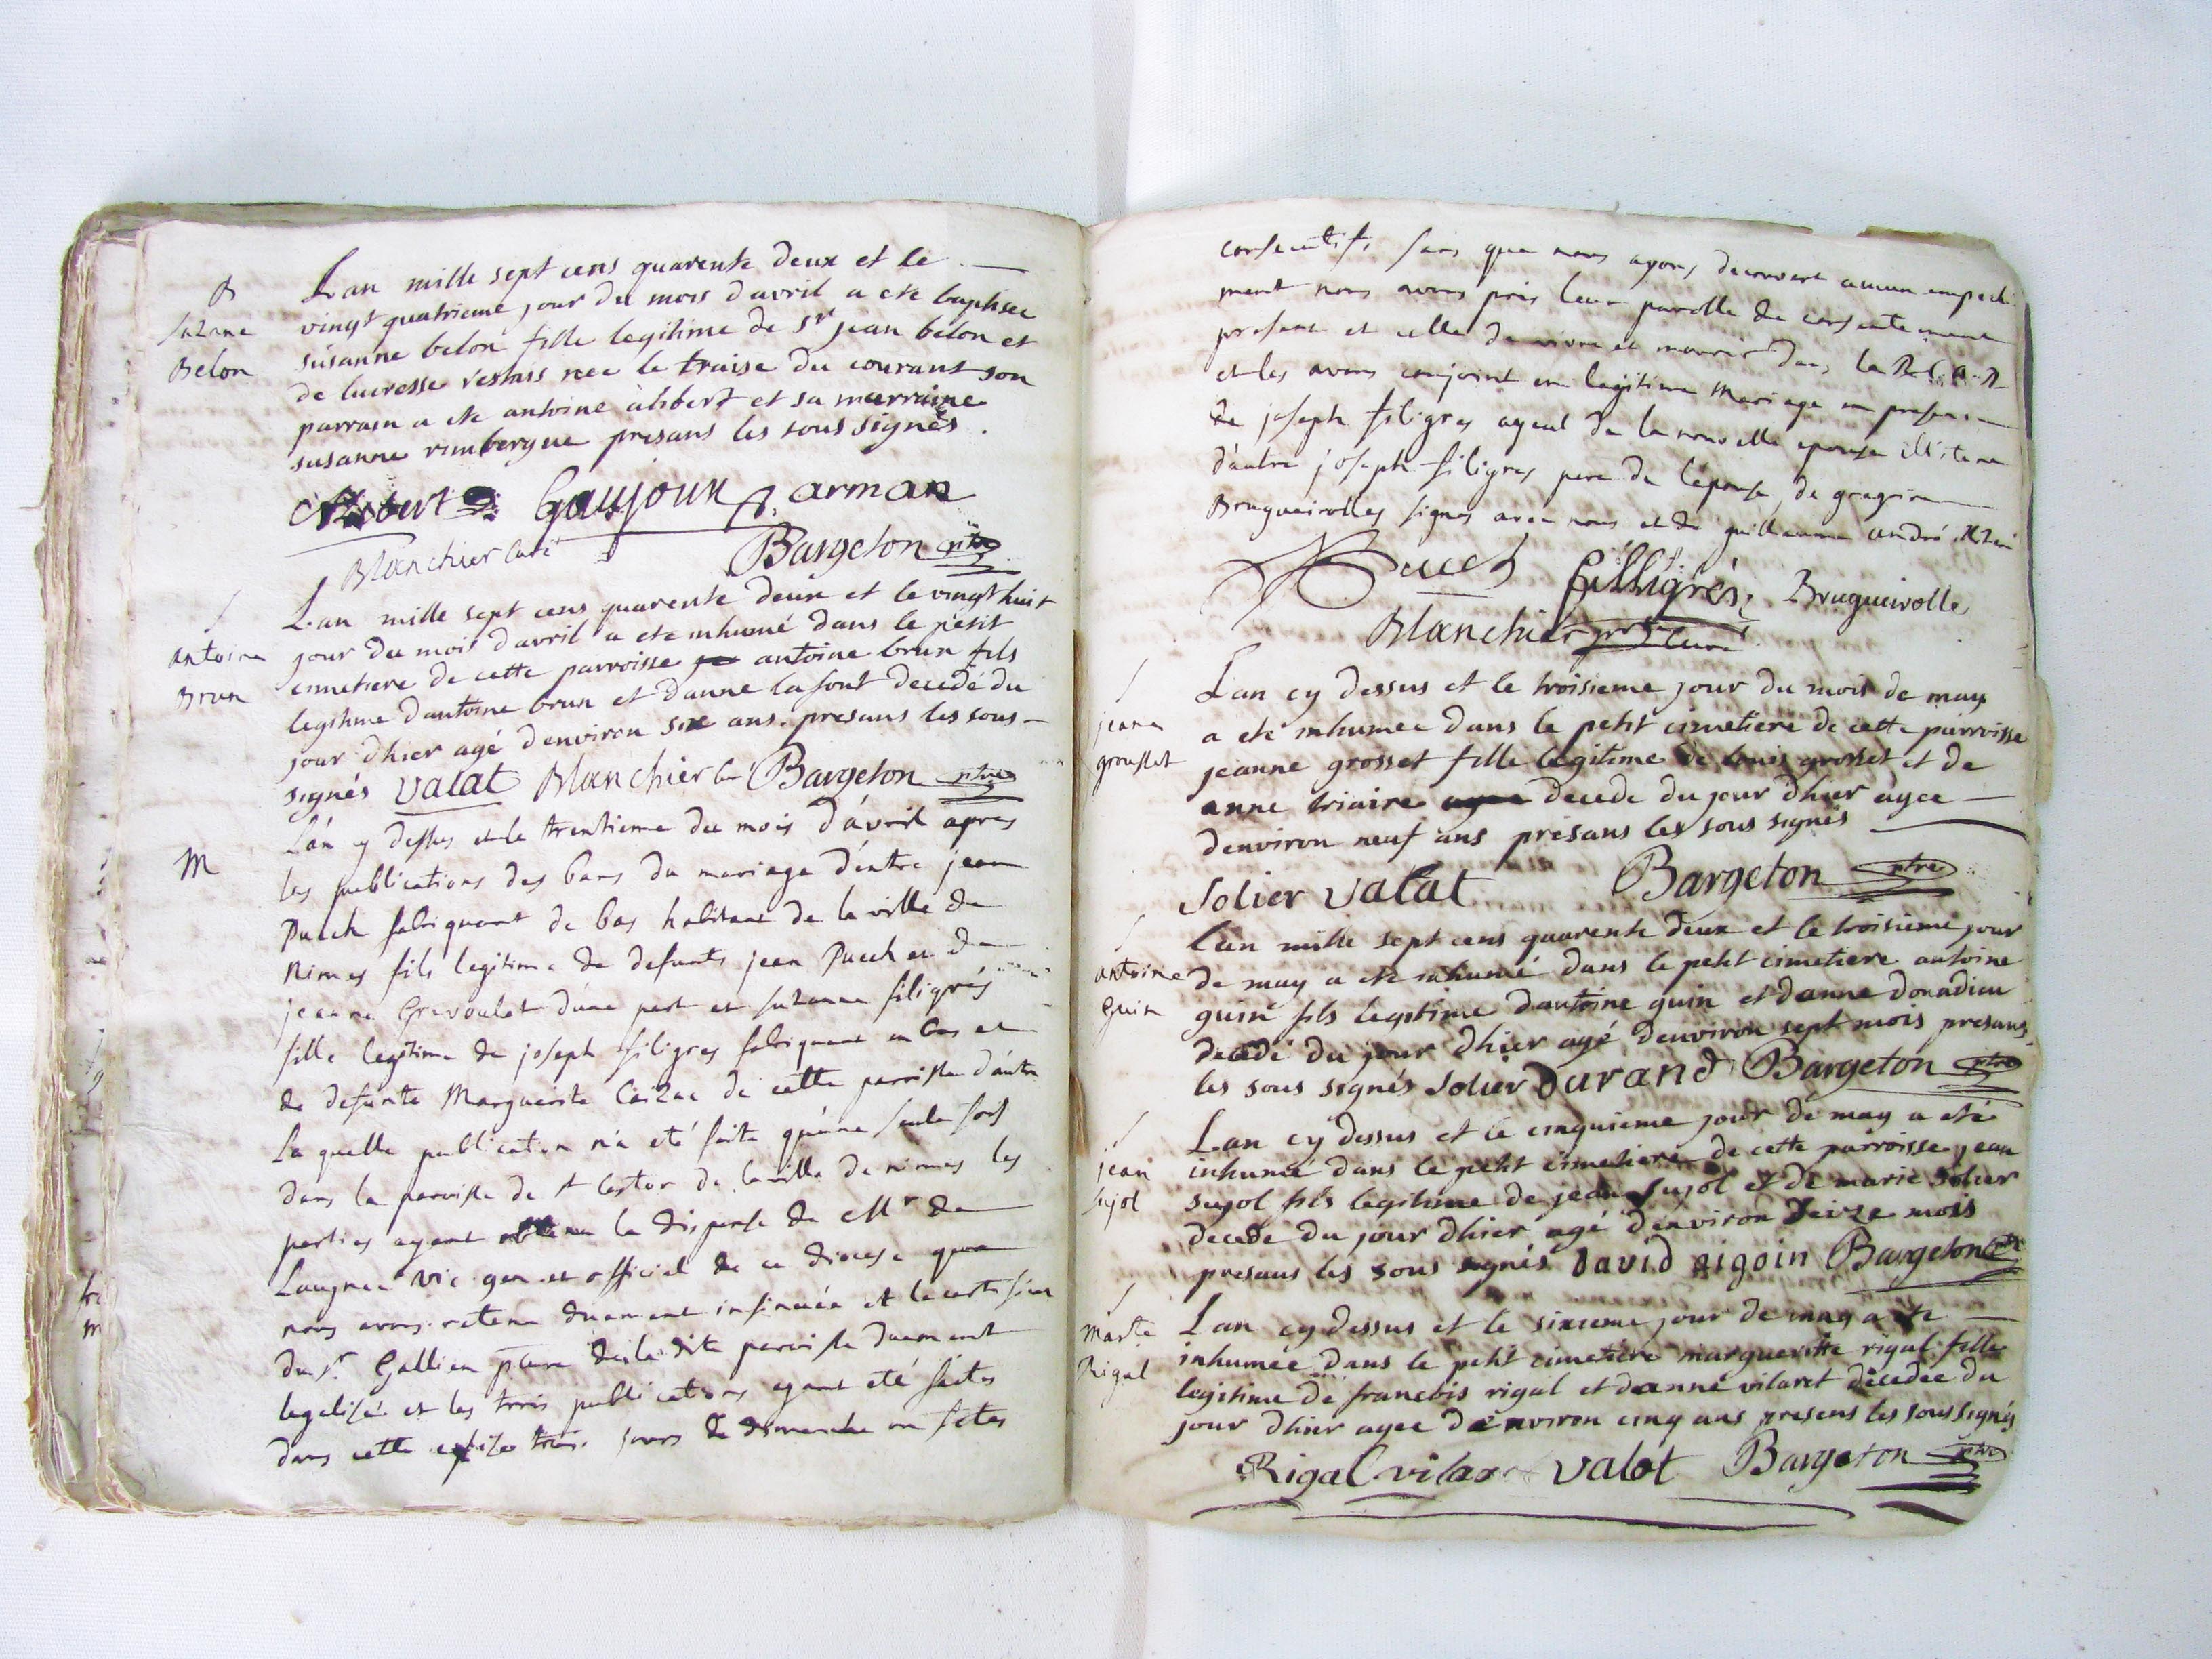 B
Suzane
Belon
Lan mille sept cens quarente deux et le
vingt quatrieme jour du mois davril a ete baptisee
susanne belon fille legitime de Sr jean belon et
de lucresse nee le traise du courant son
parrain a ete antoine alibert et sa marraine
susanne rimbergue presans les sous signés.
Alibert Gaujoux arman
Blanchier Curé Bargeton ptre
antoine
Brun
Lan mille sept cens quarente deux et le vingt huit
jour du mois davril a ete inhumé dans le petit
cimetiere de cette parroisse antoine brun fils
legitime dantoine brun et danne lafont decedé du
jour dhier agé denviron six ans. presans les sous
signés Valat Blanchier Curé Bargeton ptre
M
L'an cy dessus et le trentieme du mois d'avril apres
les publications des bans du mariage d'entre jean
Puech fabriquant de bas habitant de la ville de
Nimes fils legitime de defunts jean Puech et de
jeanne Grevoulet d'une part et suzanne filigrés
fille legitime de joseph filigres fabriquant en bas et
de defunte Marguerite Caizac de cette parroisse d'autre
la quelle publication n'a eté faite qu'une seule fois
dans la parroisse de st Castor de la ville de nimes les
parties ayant obtenu la dispense de Mr de
vic. gen. et officiel de ce diocese que
nous avons retenu duement insinuée et le certificat
du sr. Gallien de la dite parroisse duement
legalisé et les trois publications ayant eté faites
dans cette eglise trois jours de dimanche ou fetes
consecutifs sans que nous ayons decouvert aucun empeche
ment nous avons pris leur parolle de consentement
present et celle de vivre et mourir dans la R. C. A. R
et les avons conjoint en legitime mariage en presence
de joseph filigres ayeul de la nouvelle epouse illiteré
d'autre joseph filigres pere de l'epouse, de gregoire
Brugueirolles signés avec nous et de guillaume andré illiteré
Puech filligrés Brugueirolles
Blanchier ptre Curé
jeane
grousset
Lan cy dessus et le troisieme jour du mois de may
a eté inhumee dans le petit cimetiere de cette parroisse
jeanne grosset fille legitime de louis grosset et de
anne triaire decede du jour dhier agee
denviron neuf ans presans les sous signés
Solier Valat Bargeton ptre
antoine
Guin
Lan mille sept cens quarente deux et le troisieme jour
de may a ete inhumé dans le petit cimetiere antoine
guin fils legitime dantoine guin et danne donadieu
decedé du jour dhier agé denviron sept mois presans
les sous signés Solier Durand Bargeton ptre
jean
sujol
Lan cy dessus et le cinquieme jour de may a eté
inhumé dans le petit cimetiere de cette parroisse jean
sujol fils legitime de jean sujol et de marie solier
decede du jour dhier agé denviron seize mois
presans les sous signés David aigoin Bargeton ptre
Marte
Rigal
Lan cy dessus et le sixieme jour de may a ete
inhumée dans le petit cimetiere margueritte rigal fille
legitime de francois rigal et danne vilaret decedee du
jour dhier agee denviron cinq ans presens les sous signés
Rigal vilaret valot Bargeton ptre